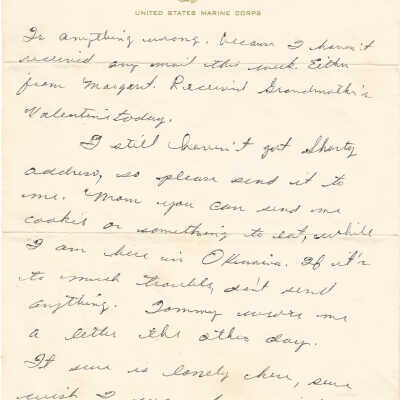 UNITED STATES MARINE CORPS
Is anything wrong. because I haven't
received any mail this week. Either
from Margaret. Received Grandmother's
Valentines today.
I still haven't got Shorty
address, so please send it to
me. Mom you can send me
cookies or something to eat, while
I am here in Okinawa. If it's
to much trouble, don't send
anything. Tommy wrote me
a letter the other day.
It sure is lonely here, sure
wish I